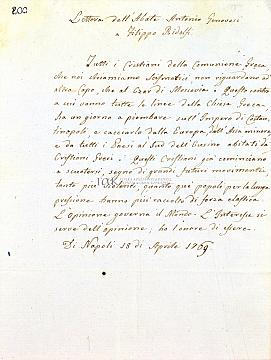 200
Lettera dell'Abate Antonio Genovesi
a Filippo Ridolfi.
Tutti i Cristiani della Comunione Greca,
che noi chiamiamo Scismatici non riguardano ad
altro Capo, che al Czar di Moscovia. Questo
a cui vanno tutte le linee della Chiesa Greca
ha un giorno a piombare sull'Impero di Costan
tinopoli, e cacciarlo dalla Europa, dall'Asia minore,
e da tutti i Paesi al Sud dell'Eusino abitati da
Cristiani Greci. Questi Cristiani già cominciano
a scuotersi, segno di grandi futuri movimenti,
tanto più violenti, quanto que' popoli per la lunga
pressione hanno più raccolto di forza elastica.
L'Opinione governa il Mondo. L'Interesse si
serve dell'opinione; ho l'onore di essere.
Di Napoli 18 di Aprile 1769